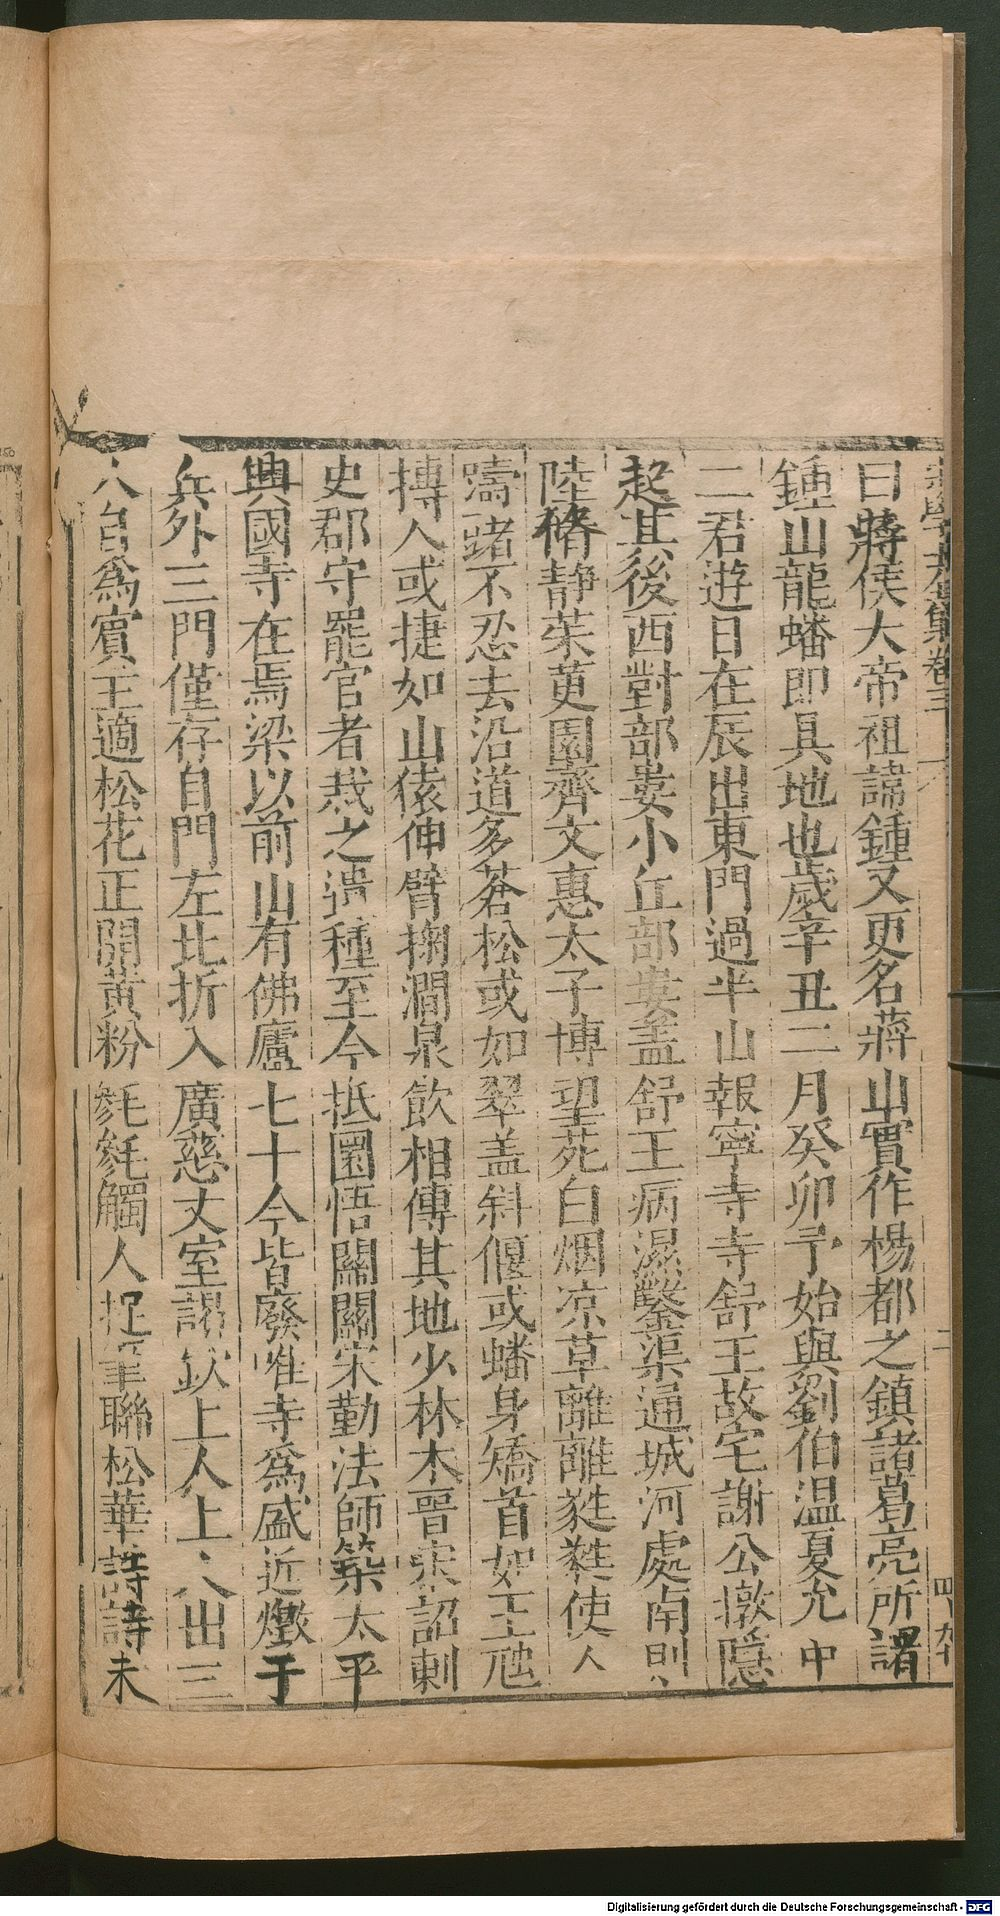 曰蔣侯大帝祖諱鍾又更名蔣山實作楊都之鎮諸葛亮所謂
鍾山龍蟠即具地也歲辛丑二月癸卯予始與劉伯温夏允中
二君遊日在辰出東門過半山報寧寺寺舒王故宅謝公墩隱
起其後西對部婁小丘部婁盖舒王病濕鑿渠通城河處南則
陸脩靜茱萸園齊文惠太子博望苑白烟凉草離離蕤蕤使人
躊躇不忍去沿道多蒼松或如翠盖斜偃或蟠身矯首如王虺
搏人或捷如山猿伸臂掬澗泉飲相傳其地少林木晉宋詔刺
史郡守罷官者栽之遺種至今抵圜悟關關宋勤法師築太平
興國寺在焉梁以前山有佛廬七十今皆廢唯寺爲盛近燬于
兵外三門僅存自門左北折入廣慈丈室謁欽上人上人出三
人自爲賓主適松花正開黄粉毿毿觸人捉筆聯松華詩詩未
Digitalisierung gefördert durch die Deutsche Forschungsgemeinschaft - DFG